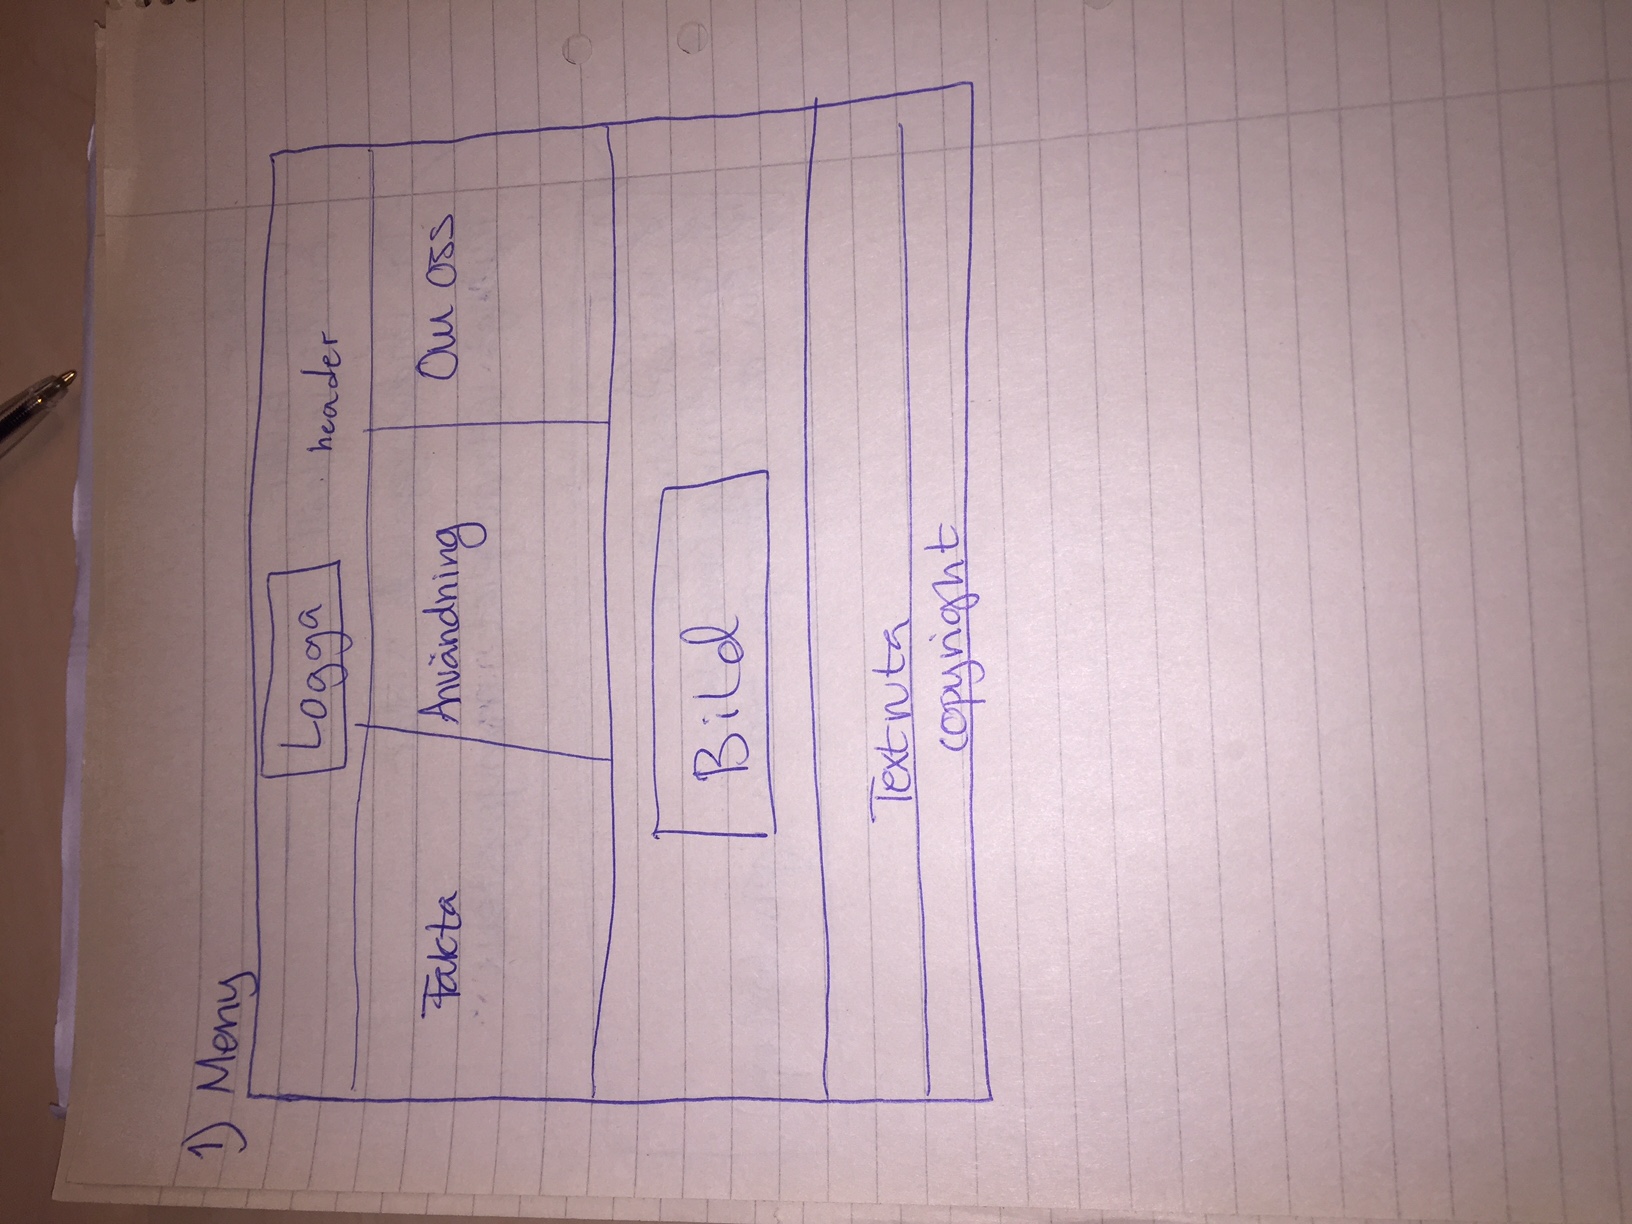 1) Meny
Logga
header
Fakta
Användning
Om oss
Bild
Textruta
copyright